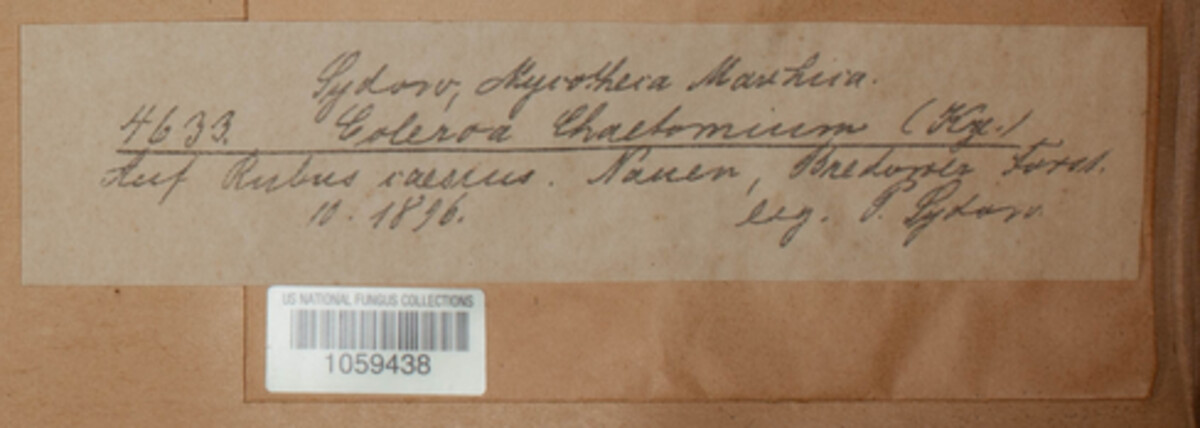 Sydow, Mycotheca Marchica.
4633. Coleroa Chaetomium (Kze.)
Auf Rubus caesius. Nauen, Bredower Forst.
10. 1896. leg. P. Sydow.
US NATIONAL FUNGUS COLLECTIONS
1059438